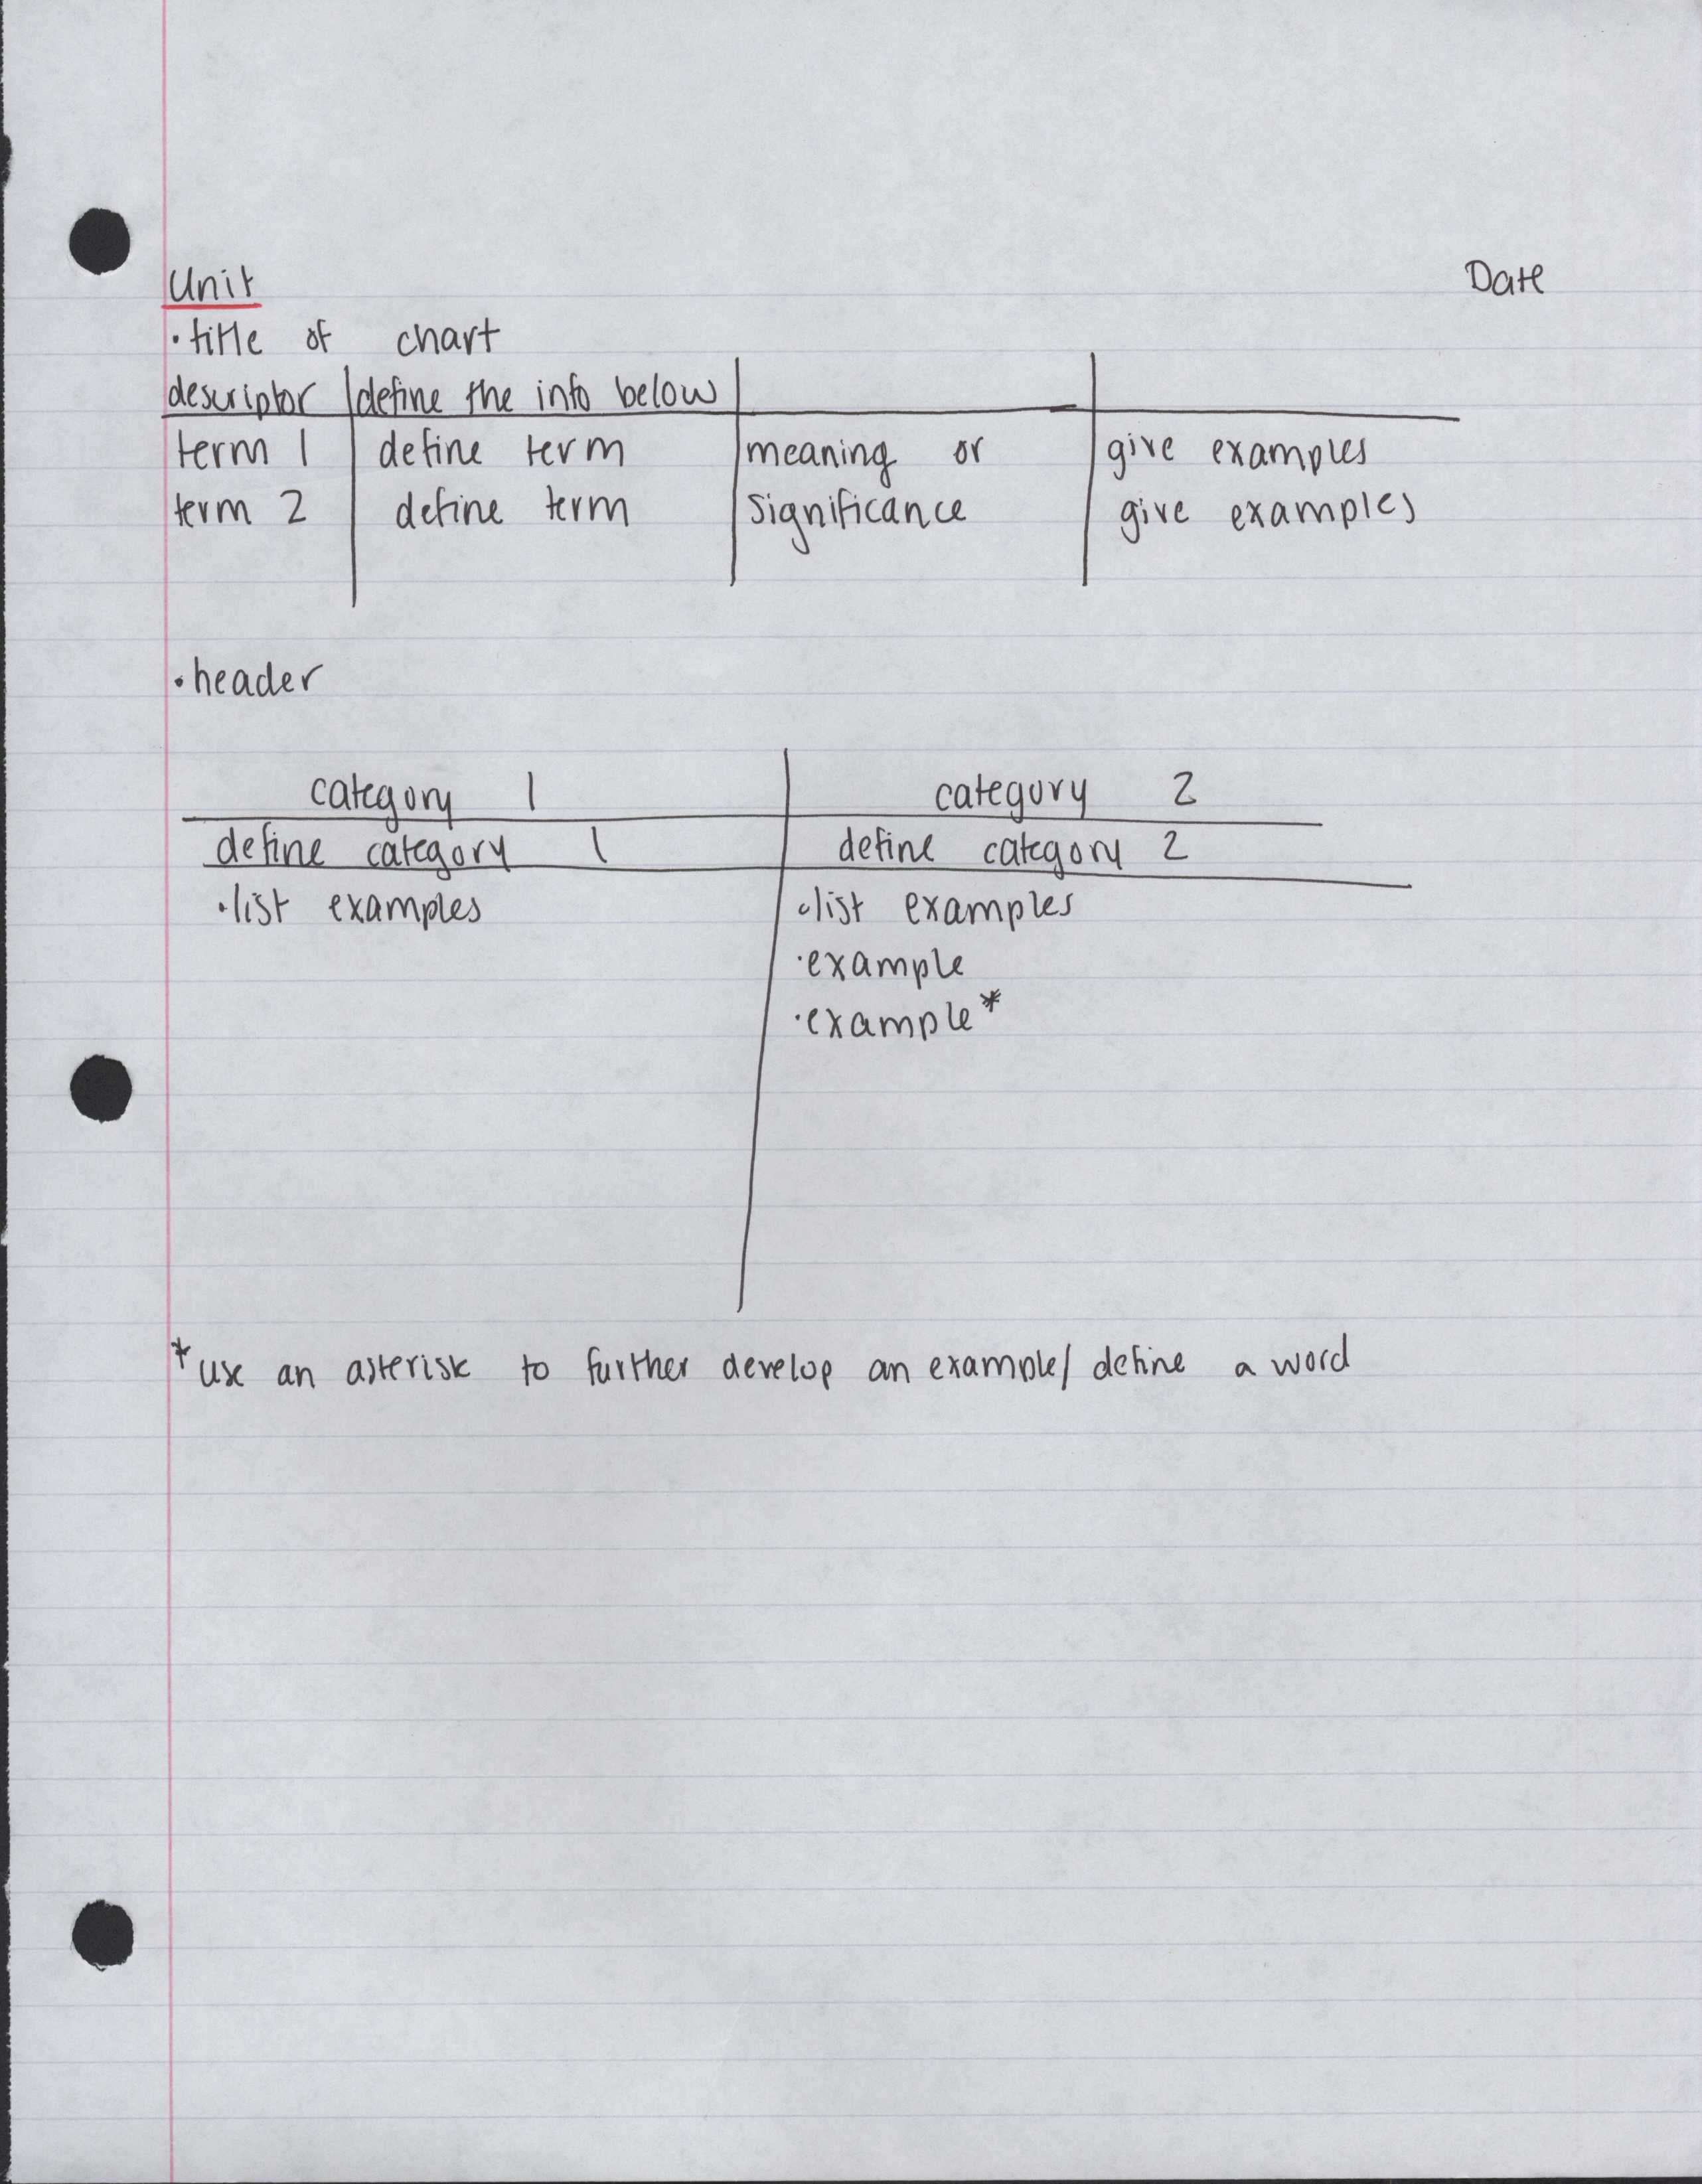 Unit Date
·title of chart
descriptor define the info below
term 1 define term meaning or give examples
term 2 define term significance give examples
·header
category 1 category 2
define category 1 define category 2
·list examples ·list examples
·example
·example*
*use an asterisk to further develop an example/ define a word